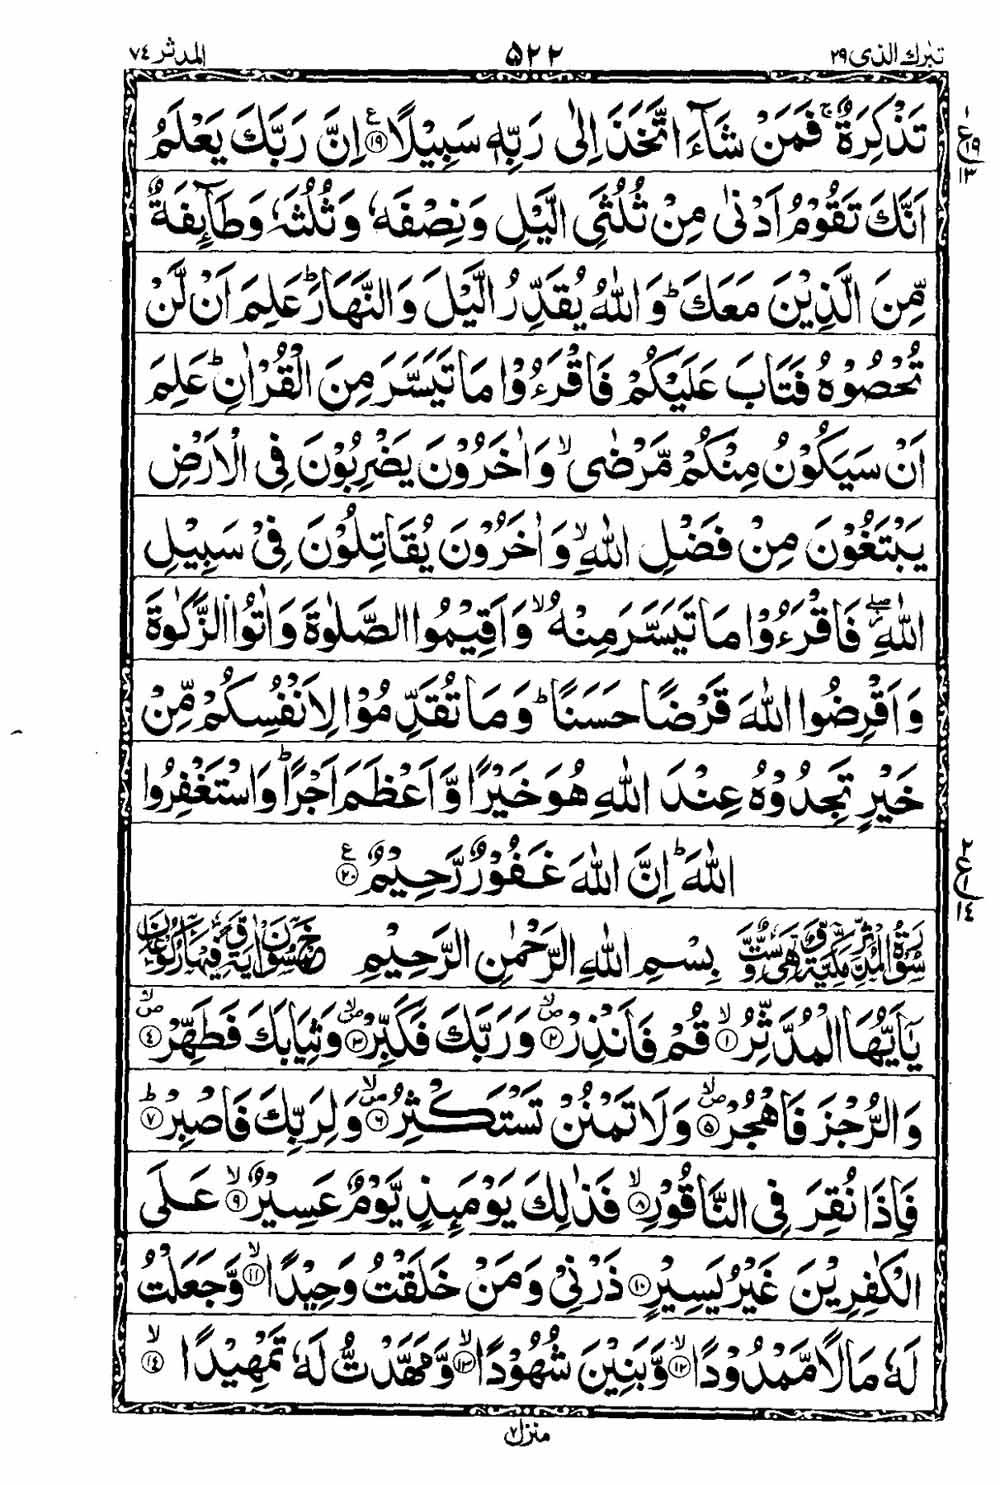 تبٰرك الذی ۲۹ ۵۲۲ المدثر ۷٤
تَذْكِرَةٌ ۚ فَمَنْ شَآءَ اتَّخَذَ اِلٰى رَبِّهٖ سَبِيْلًا ﴿۱۹﴾ ع اِنَّ رَبَّكَ يَعْلَمُ
اَنَّكَ تَقُوْمُ اَدْنٰى مِنْ ثُلُثَيِ الَّيْلِ وَنِصْفَهٗ وَثُلُثَهٗ وَطَآئِفَةٌ
مِّنَ الَّذِيْنَ مَعَكَ ؕ وَاللّٰهُ يُقَدِّرُ الَّيْلَ وَالنَّهَارَ ؕ عَلِمَ اَنْ لَّنْ
تُحْصُوْهُ فَتَابَ عَلَيْكُمْ فَاقْرَءُوْا مَا تَيَسَّرَ مِنَ الْقُرْاٰنِ ؕ عَلِمَ
اَنْ سَيَكُوْنُ مِنْكُمْ مَّرْضٰى ۙ وَاٰخَرُوْنَ يَضْرِبُوْنَ فِي الْاَرْضِ
يَبْتَغُوْنَ مِنْ فَضْلِ اللّٰهِ ۙ وَاٰخَرُوْنَ يُقَاتِلُوْنَ فِيْ سَبِيْلِ
اللّٰهِ ۖ فَاقْرَءُوْا مَا تَيَسَّرَ مِنْهُ ۙ وَاَقِيْمُوا الصَّلٰوةَ وَاٰتُوا الزَّكٰوةَ
وَاَقْرِضُوا اللّٰهَ قَرْضًا حَسَنًا ؕ وَمَا تُقَدِّمُوْا لِاَنْفُسِكُمْ مِّنْ
خَيْرٍ تَجِدُوْهُ عِنْدَ اللّٰهِ هُوَ خَيْرًا وَّاَعْظَمَ اَجْرًا ؕ وَاسْتَغْفِرُوا
اللّٰهَ ؕ اِنَّ اللّٰهَ غَفُوْرٌ رَّحِيْمٌ ﴿۲۰﴾ ع
سُوْرَةُ الْمُدَّثِّرِ مَكِّيَّةٌ وَّهِيَ سِتٌّ وَّ بِسْمِ اللّٰهِ الرَّحْمٰنِ الرَّحِيْمِ خَمْسُوْنَ اٰيَةً وَّفِيْهَا رُكُوْعَانِ
يٰٓاَيُّهَا الْمُدَّثِّرُ ۙ﴿۱﴾ قُمْ فَاَنْذِرْ ۙ﴿۲﴾ وَرَبَّكَ فَكَبِّرْ ۙ﴿۳﴾ وَثِيَابَكَ فَطَهِّرْ ۙ﴿٤﴾
وَالرُّجْزَ فَاهْجُرْ ۙ﴿۵﴾ وَلَا تَمْنُنْ تَسْتَكْثِرُ ۙ﴿۶﴾ وَلِرَبِّكَ فَاصْبِرْ ؕ﴿۷﴾
فَاِذَا نُقِرَ فِي النَّاقُوْرِ ۙ﴿۸﴾ فَذٰلِكَ يَوْمَئِذٍ يَّوْمٌ عَسِيْرٌ ۙ﴿۹﴾ عَلَى
الْكٰفِرِيْنَ غَيْرُ يَسِيْرٍ ﴿۱۰﴾ ذَرْنِيْ وَمَنْ خَلَقْتُ وَحِيْدًا ۙ﴿۱۱﴾ وَّجَعَلْتُ
لَهٗ مَالًا مَّمْدُوْدًا ۙ﴿۱۲﴾ وَّبَنِيْنَ شُهُوْدًا ۙ﴿۱۳﴾ وَّمَهَّدْتُّ لَهٗ تَمْهِيْدًا ۙ﴿۱٤﴾
منزل ۷